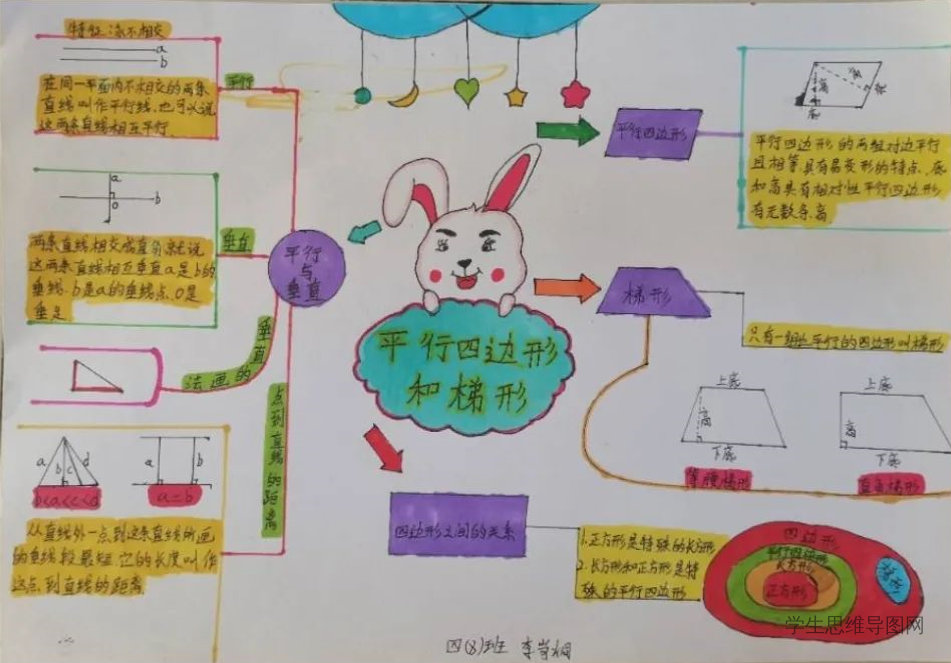 特征:永不相交
a
b
在同一平面内不相交的两条
直线叫作平行线,也可以说
这两条直线相互平行.
平行
a
b
o
两条直线相交成直角就说
这两条直线相互垂直a是b的
垂线.b是a的垂线点.O是
垂足
垂直
平行
与
垂直
垂直
的画法
点到直线的距离
a b c d
b<a<c<d
a b
a=b
从直线外一点到这条直线所画
的垂线段最短,它的长度叫作
这点到直线的距离.
平行四边形
和梯形
平行四边形
高
高
底
底
平行四边形的两组对边平行
且相等具有易变形的特点、底
和高具有相对性平行四边形
有无数条高
梯形
只有一组边平行的四边形叫梯形
上底
高
下底
等腰梯形
上底
高
下底
直角梯形
四边形之间的关系
1.正方形是特殊的长方形
2.长方形和正方形是特
殊的平行四边形
四边形
平行四边形
长方形
正方形
梯形
四(8)班
学生思维导图网